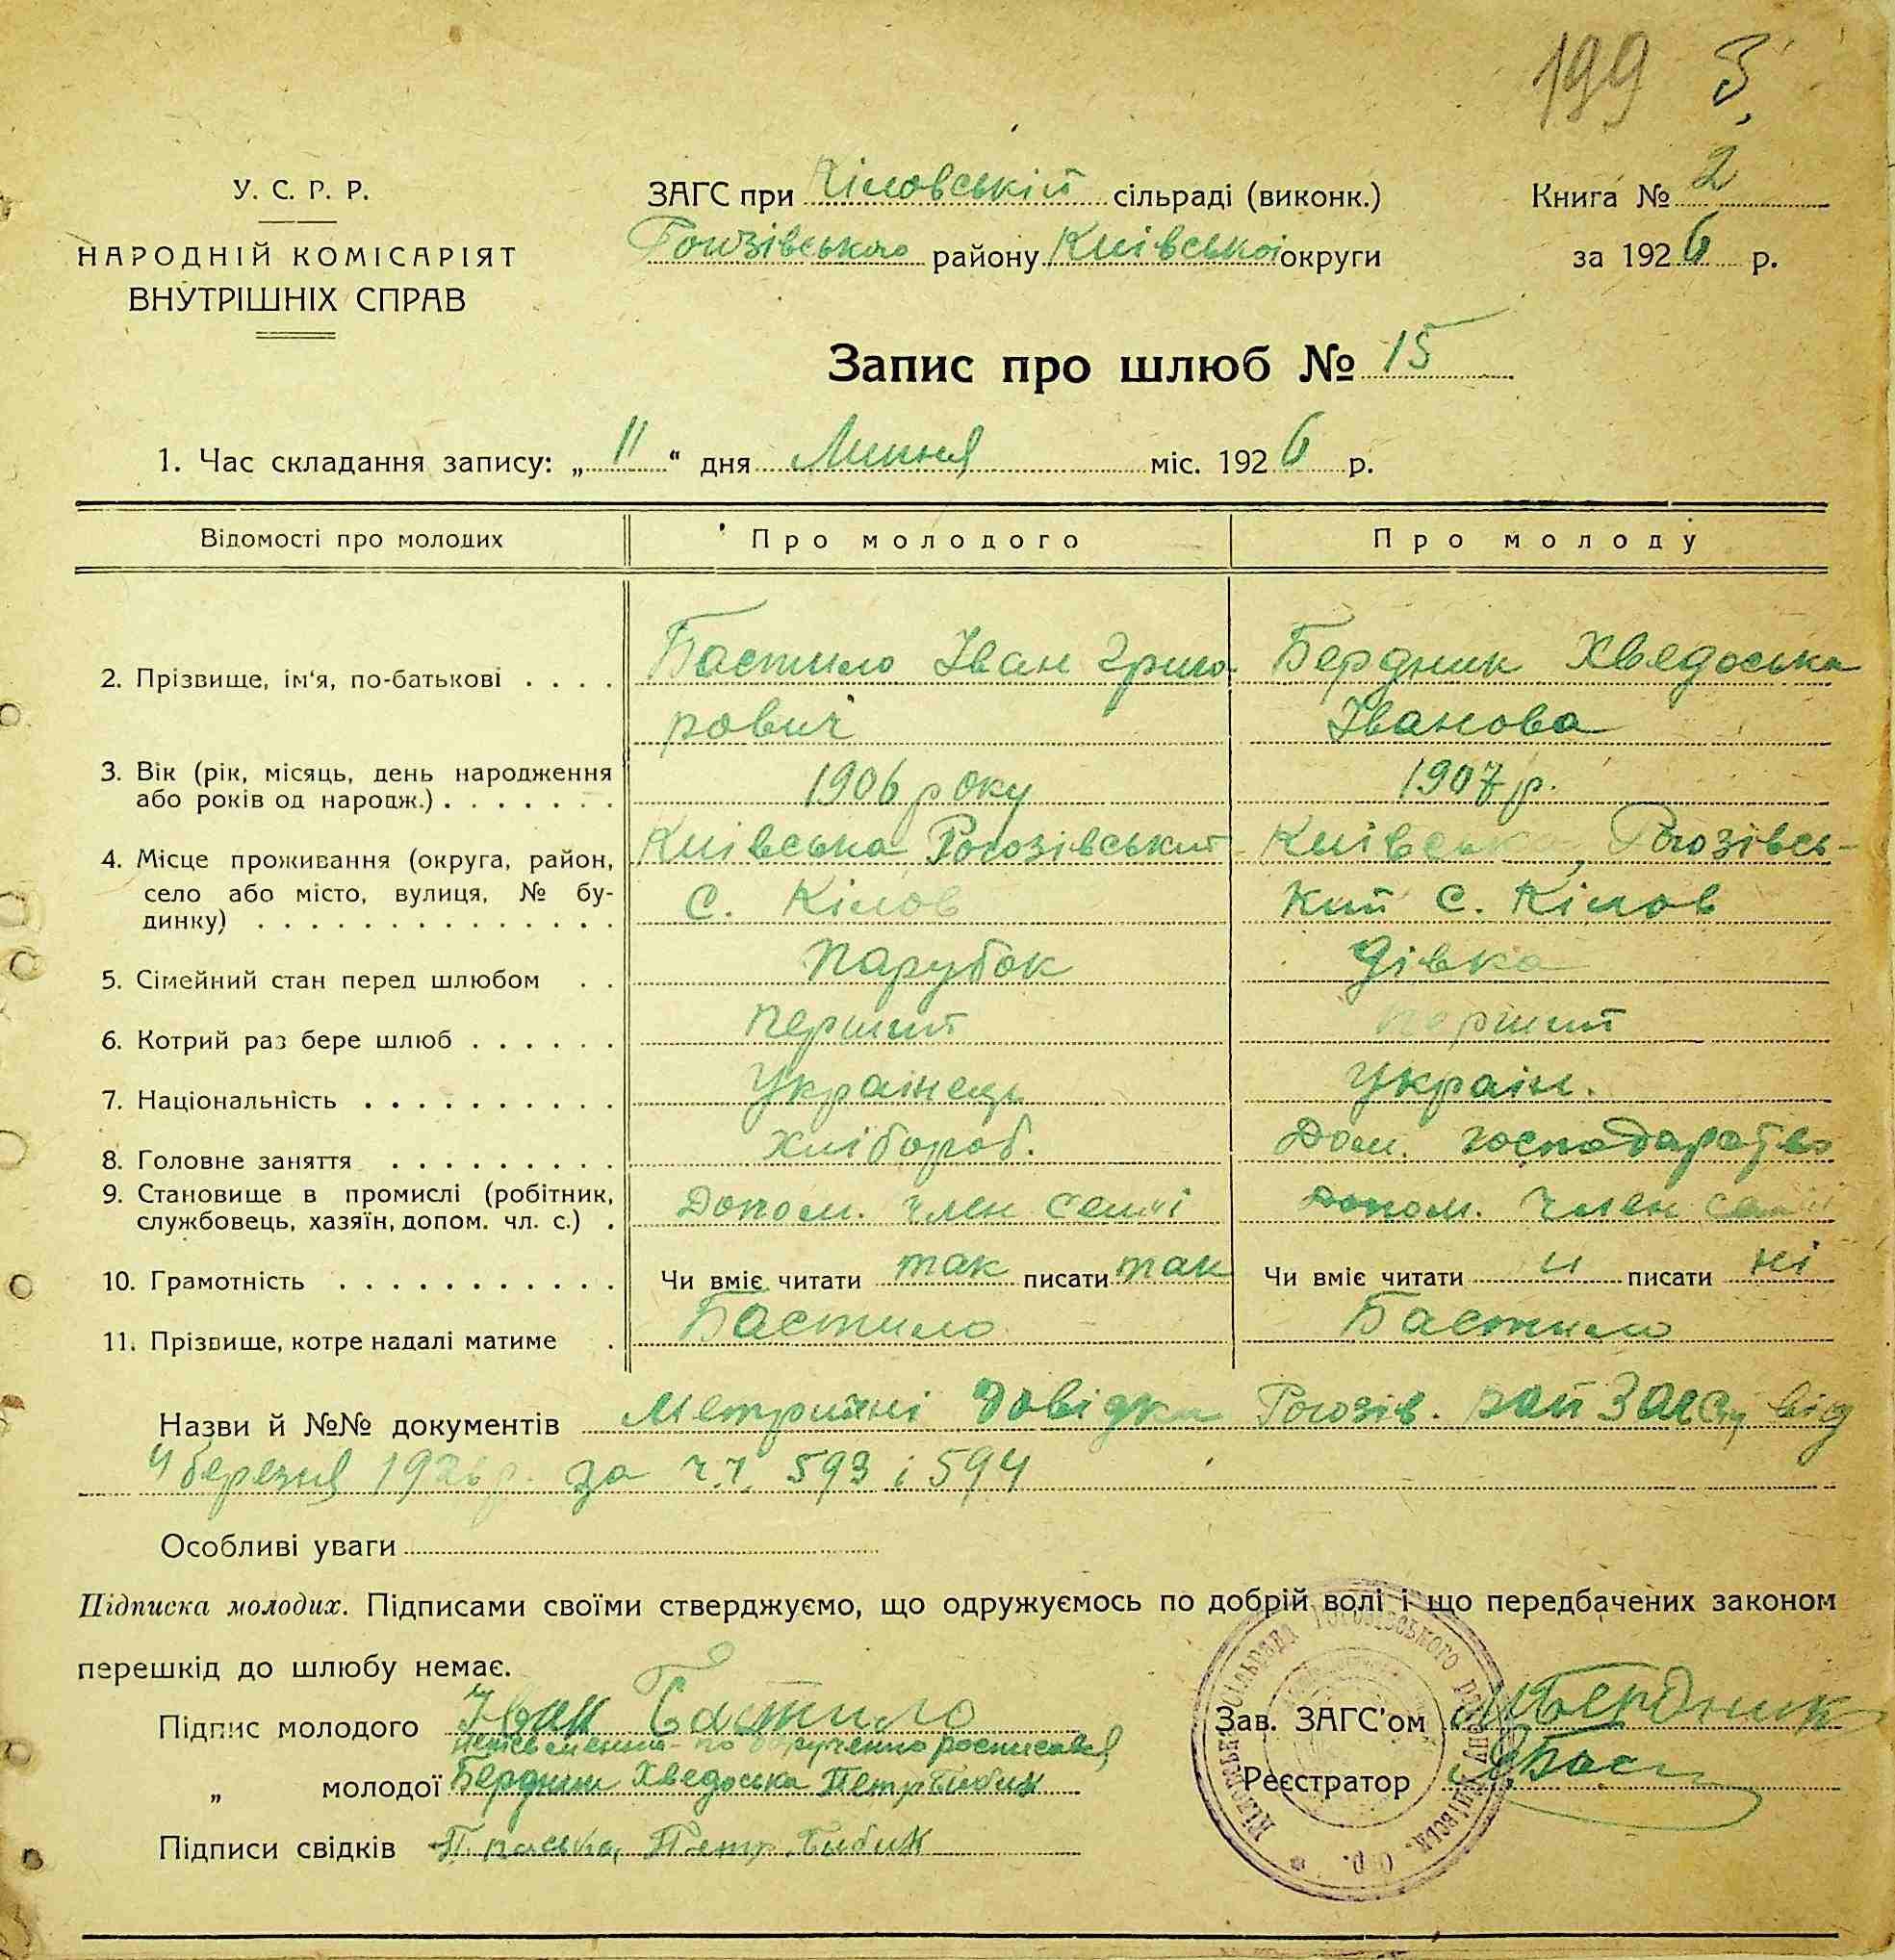 199
У. С. Р. Р.
НАРОДНІЙ КОМІСАРІЯТ
ВНУТРІШНІХ СПРАВ
ЗАГС при Кіловській сільраді (виконк.)
Рогозівського району Київської округи
Книга № 2
за 1926 р.
Запис про шлюб № 15
1. Час складання запису: „ 11 “ дня Липня міс. 1926 р.
Відомості про молодих Про молодого Про молоду
2. Прізвище, ім'я, по-батькові . . . . Бастило Іван Григо Бердник Хведоська
рович Іванова
3. Вік (рік, місяць, день народження
або років од народж.) . . . . . . . 1906 року 1907 р.
4. Місце проживання (округа, район, Київська Рогозівський Київська, Рогозівсь-
село або місто, вулиця, № бу-
динку) . . . . . . . . . . . . . . с. Кілов кий с. Кілов
5. Сімейний стан перед шлюбом . . парубок дівка
6. Котрий раз бере шлюб . . . . . . перший перший
7. Національність . . . . . . . . . . Українець Україн.
8. Головне заняття . . . . . . . . . хлібороб. Дом. господарство
9. Становище в промислі (робітник,
службовець, хазяїн, допом. чл. с.) . Допом. член семї допом. член семї
10. Грамотність . . . . . . . . . . . Чи вміє читати так писати так Чи вміє читати " писати ні
11. Прізвище, котре надалі матиме . Бастило Бастило
Назви й №№ документів Метричні довідки Рогозів. рай ЗАГСу від
4 березня 1926 р. за ч.ч. 593 і 594
Особливі уваги
Підписка молодих. Підписами своїми стверджуємо, що одружуємось по добрій волі і що передбачених законом
перешкід до шлюбу немає.
Підпис молодого Іван Бастило
неписьменний по доручению росписався
„ молодої Бердник Хведоська Петр Бибик
Підписи свідків Петр Бибик
Зав. ЗАГС'ом Бердник
Реєстратор
КІЛОВСЬКА СІЛЬРАДА РОГОЗІВСЬКОГО РАЙОНУ КИЇВСЬК. ОКР.